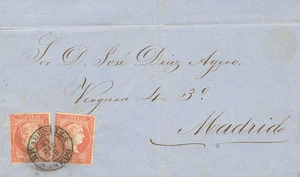 Sor D. José Diaz Agero.
Vergara 4 3º
Madrid